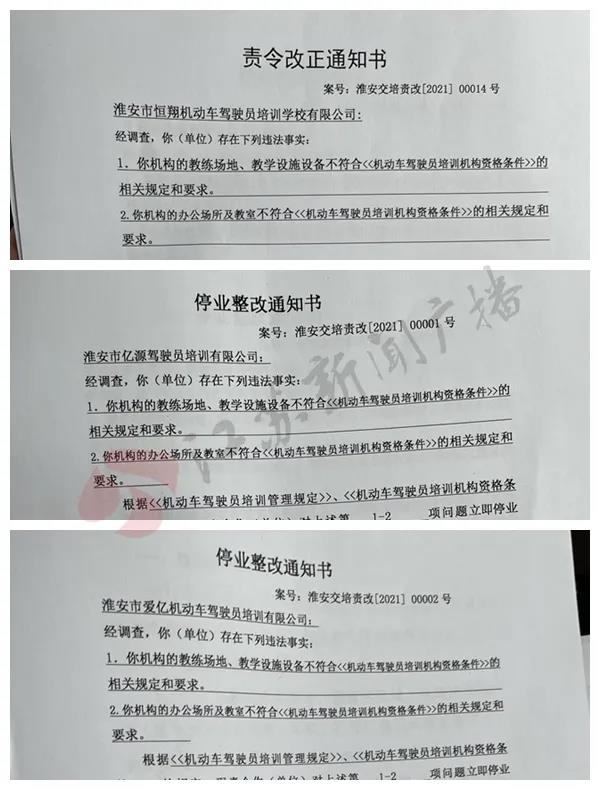 责令改正通知书
案号：淮安交培责改[2021] 00014 号
淮安市恒翔机动车驾驶员培训学校有限公司：
经调查，你（单位）存在下列违法事实：
1．你机构的教练场地、教学设施设备不符合<<机动车驾驶员培训机构资格条件>>的
相关规定和要求。
2.你机构的办公场所及教室不符合<<机动车驾驶员培训机构资格条件>>的相关规定和
要求。
停业整改通知书
案号：淮安交培责改[2021] 00001 号
淮安市亿源驾驶员培训有限公司：
经调查，你（单位）存在下列违法事实：
1．你机构的教练场地、教学设施设备不符合<<机动车驾驶员培训机构资格条件>>的
相关规定和要求。
2.你机构的办公场所及教室不符合<<机动车驾驶员培训机构资格条件>>的相关规定和
要求。
根据<<机动车驾驶员培训管理规定>>、<<机动车驾驶员培训机构资格条
（单位）对上述第 1-2 项问题立即停业
江苏新闻广播
停业整改通知书
案号：淮安交培责改[2021] 00002 号
淮安市爱亿机动车驾驶员培训有限公司：
经调查，你（单位）存在下列违法事实：
1．你机构的教练场地、教学设施设备不符合<<机动车驾驶员培训机构资格条件>>的
相关规定和要求。
2.你机构的办公场所及教室不符合<<机动车驾驶员培训机构资格条件>>的相关规定和
要求。
根据<<机动车驾驶员培训管理规定>>、<<机动车驾驶员培训机构资格条
你（单位）对上述第 1-2 项问题立即停业